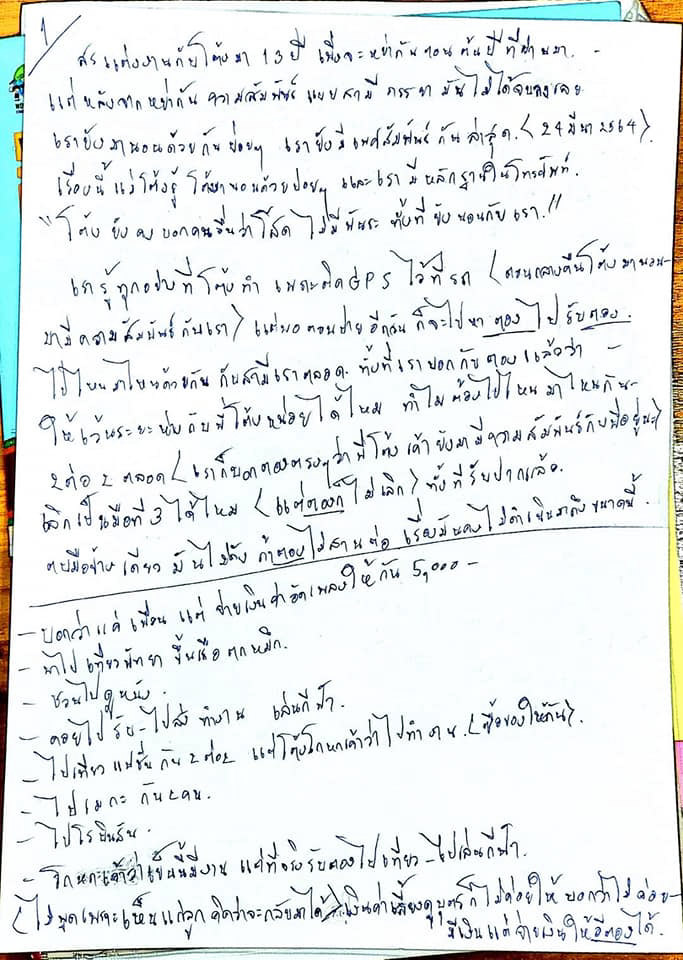 1
สร แต่งงานกับโต้งมา 13 ปี เพิ่งจะหย่ากันตอนต้นปีที่ผ่านมา. -
แต่หลังจากหย่ากัน ความสัมพันธ์ แบบสามี ภรรยา มันไม่ได้จบลงเลย
เรายังมานอนด้วยกันบ่อยๆ เรายังมีเพศสัมพันธ์กันล่าสุด.<24 มีนา 2564>.
เรื่องนี้ แม่โต้งรู้ โต้งมานอนด้วยบ่อยๆ และเรามีหลักฐานในโทรศัพท์.
"โต้ง ยังคงบอกคนอื่นว่าโสด ไม่มีพันธะ ทั้งที่ยังนอนกับเรา.!!
เรารู้ทุกอย่างที่โต้งทำ เพราะติดGPS ไว้ที่รถ <ตอนกลางคืนโต้งมานอน-
มามีความสัมพันธ์กับเรา> แต่พอตอนบ่ายอีกวัน ก็จะไปหา ตอง ไปรับตอง.
ไปไหนมาไหนด้วยกัน กับสามีเราตลอด. ทั้งที่เราบอกกับตองแล้วว่า -
ให้เว้นระยะห่างกับพี่โต้งหน่อยได้ไหม ทำไมต้องไปไหนมาไหนกัน-
2ต่อ2 ตลอด<เราก็บอกตองตรงๆว่าพี่โต้งเค้ายังมามีความสัมพันธ์กับพี่อยู่นะ>
เลิกเป็นมือที่3 ได้ไหม <แต่ตองก็ไม่เลิก> ทั้งที่รับปากแล้ว.
ตบมือข้างเดียวมันไม่ดัง ถ้าตองไม่สานต่อ เรื่องมันคงไม่ดำเนินมาถึงขนาดนี้.
- บอกว่าแค่เพื่อน แต่จ่ายเงินค่าอัดเพลงให้กัน 5,000 -
- พาไปเที่ยวพัทยา ขึ้นเรือตกหมึก.
- ชวนไปดูหนัง.
- คอยไปรับ-ไปส่ง ทำงาน เล่นกีฬา.
- ไปเที่ยวแฟชั่นกัน 2ต่อ2 แต่โต้งโกหกเค้าว่าไปทำงาน.<ซื้อของให้กัน>.
- ไปเมกะ กัน2คน.
- ไปโรบินสัน.
- โกหกเค้าว่าเย็นนี้มีงาน แต่ที่จริงรับตองไปเที่ยว-ไปเล่นกีฬา.
<ไม่พูดเพราะเห็นแก่ลูก คิดว่าจะกลับมาได้> เงินค่าเลี้ยงดูบุตรก็ไม่ค่อยให้ บอกว่าไม่ค่อย-
มีเงินแต่จ่ายเงินให้อีตองได้.